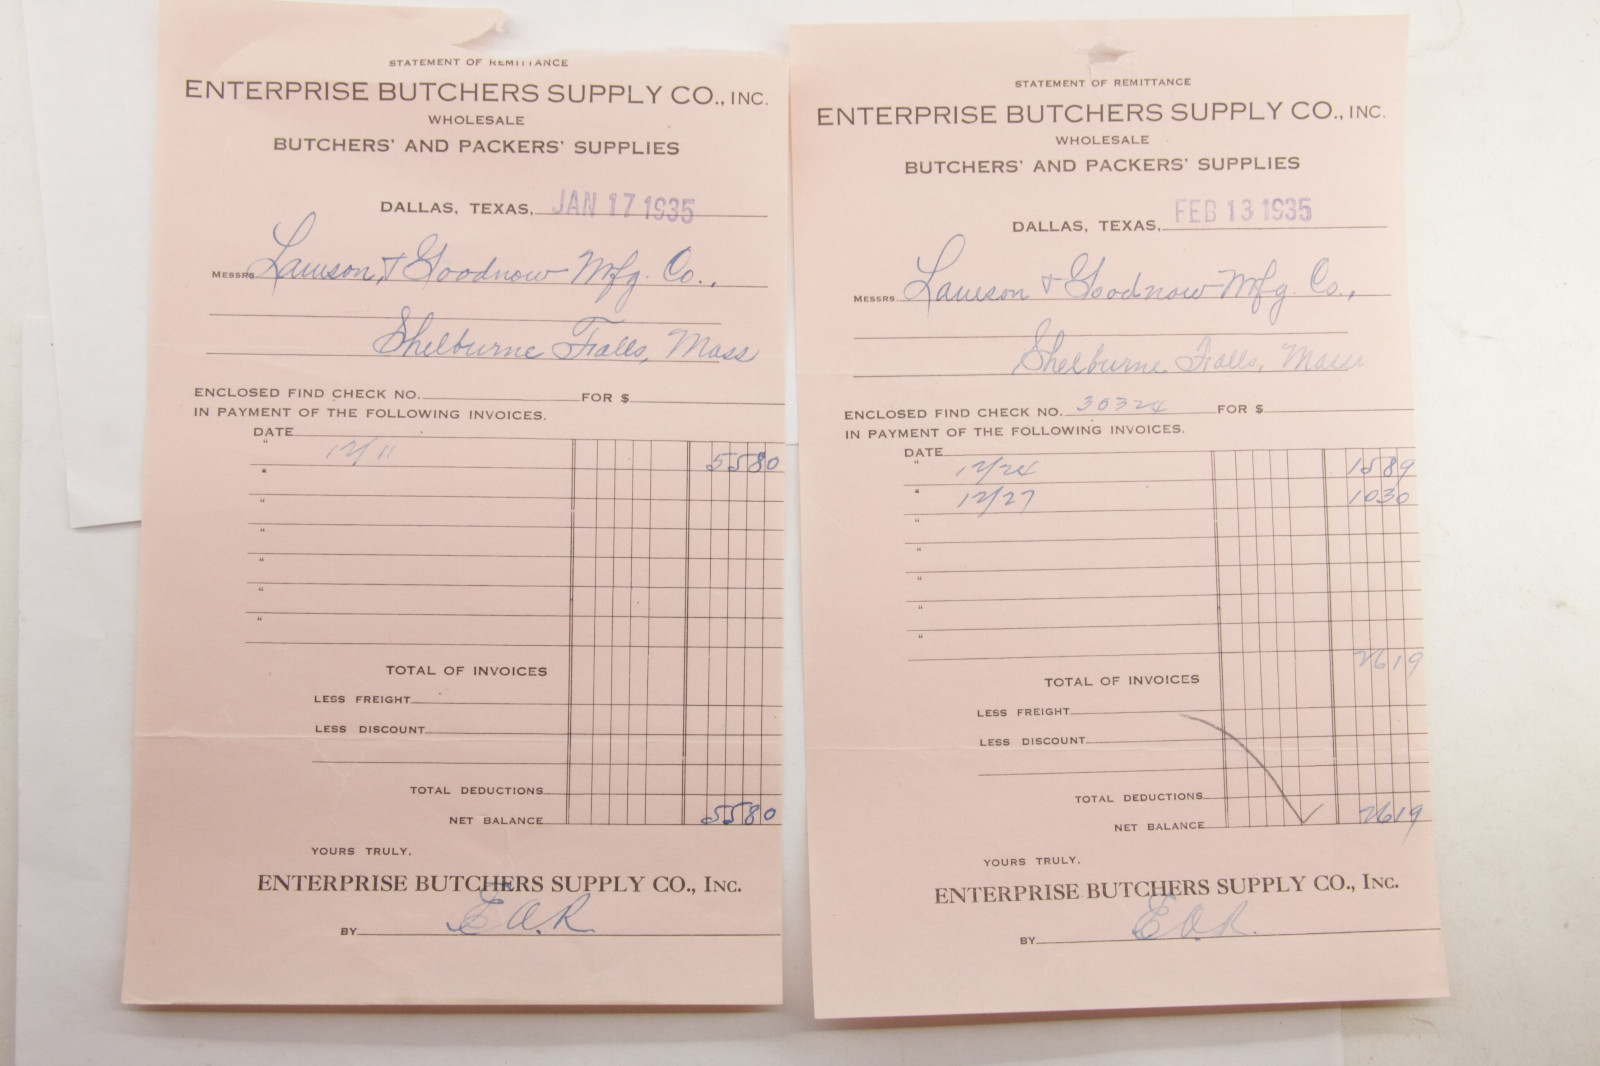 STATEMENT OF REMITTANCE
ENTERPRISE BUTCHERS SUPPLY CO., INC.
WHOLESALE
BUTCHERS' AND PACKERS' SUPPLIES
DALLAS, TEXAS, JAN 17 1935
MESSRS Lamson & Goodnow Mfg. Co.,
Shelburne Falls, Mass
ENCLOSED FIND CHECK NO. FOR $
IN PAYMENT OF THE FOLLOWING INVOICES.
DATE
" 12/11 5580
"
"
"
"
"
"
TOTAL OF INVOICES
LESS FREIGHT
LESS DISCOUNT
TOTAL DEDUCTIONS
NET BALANCE 5580
YOURS TRULY,
ENTERPRISE BUTCHERS SUPPLY CO., INC.
BY E.O.R.
STATEMENT OF REMITTANCE
ENTERPRISE BUTCHERS SUPPLY CO., INC.
WHOLESALE
BUTCHERS' AND PACKERS' SUPPLIES
DALLAS, TEXAS, FEB 13 1935
MESSRS Lamson & Goodnow Mfg. Co.,
Shelburne Falls, Mass
ENCLOSED FIND CHECK NO. 30324 FOR $
IN PAYMENT OF THE FOLLOWING INVOICES.
DATE
" 12/24 1589
" 12/27 1030
"
"
"
"
"
2619
TOTAL OF INVOICES
LESS FREIGHT
LESS DISCOUNT
TOTAL DEDUCTIONS
NET BALANCE 2619
YOURS TRULY,
ENTERPRISE BUTCHERS SUPPLY CO., INC.
BY E.O.R.